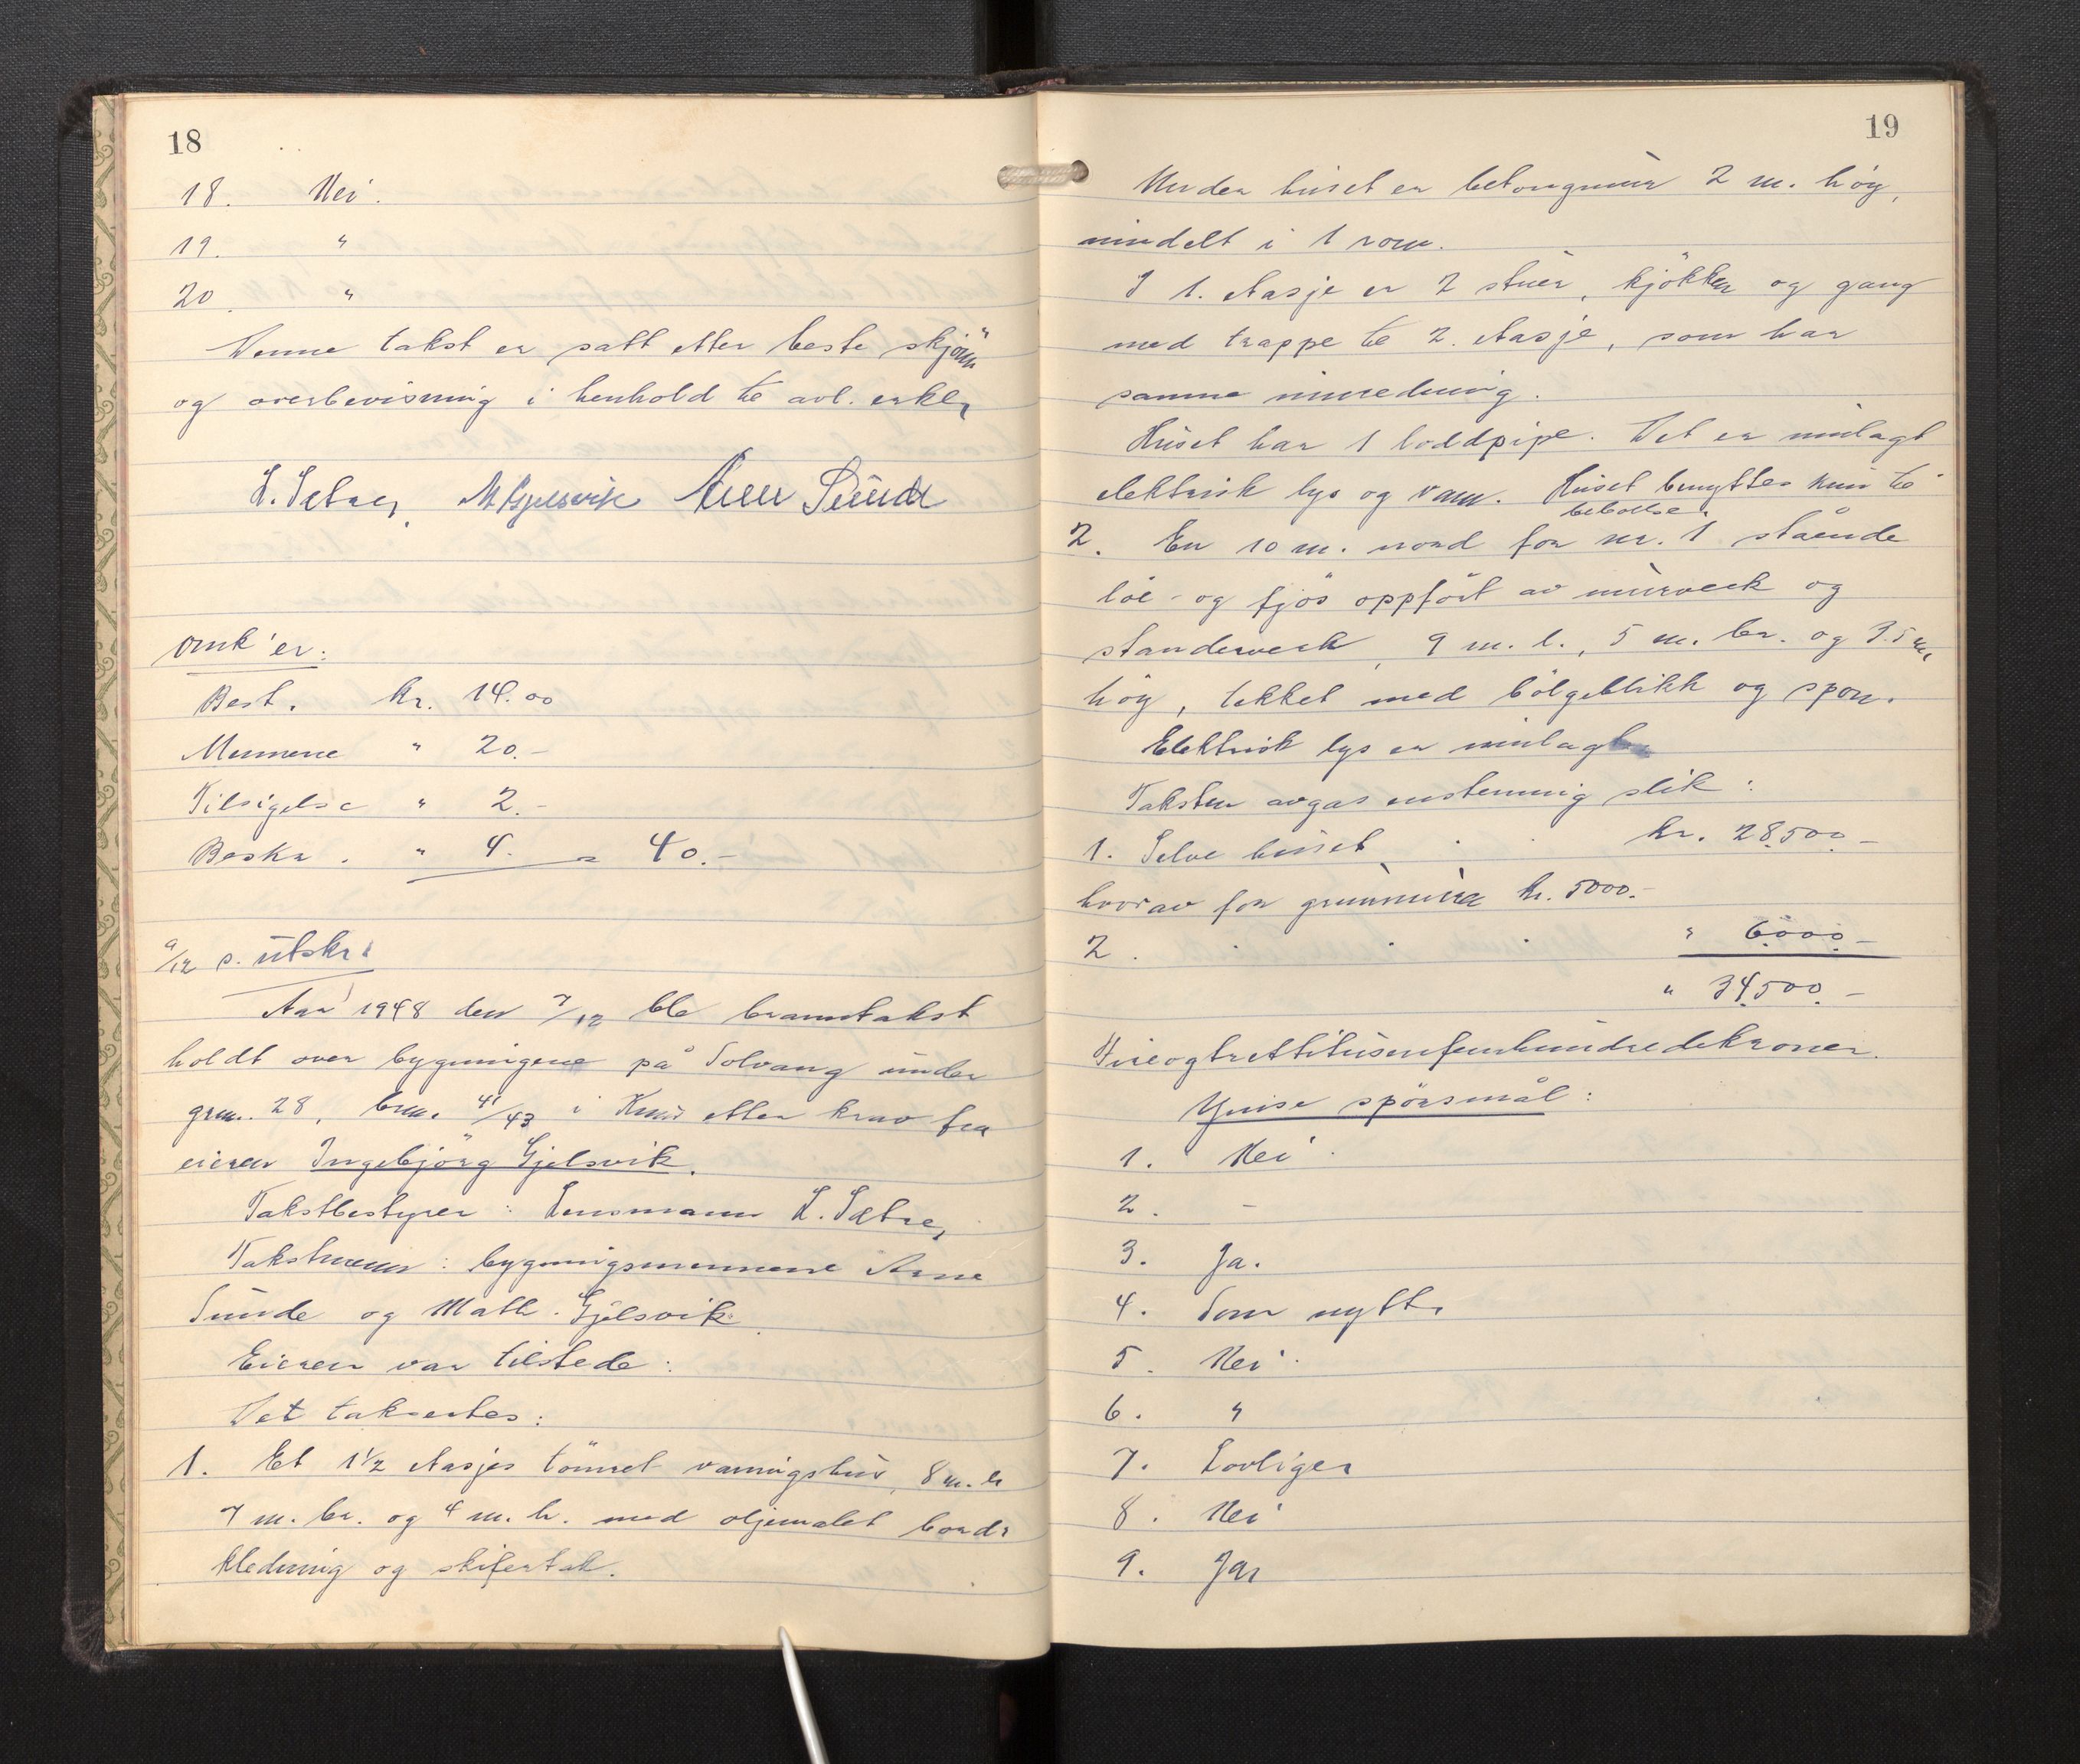 18
18. Nei.
19. "
20. "
Denne takst er satt etter beste skjönn
og overbevisning i henhold te avl. erkl.
L. Sætre, M Gjelsvik Arne Sunde
Omk'er:
Best. kr. 14.00
Mennene " 20.-
Tilsigelse " 2.-
Beskr. " 4. = 40.-
9/12 s. utskr.
Aar 1948 den 7/12 ble branntakst
holdt over bygningene på Solvang under
grnr. 28, brnr. 41/43 i etter krav fra
eieren Ingebjörg Gjelsvik.
Takstbestyrer: Lensmann L. Sætre,
Takstmenn: bygningsmennene Arne
Sunde og Math. Gjelsvik.
Eieren var tilstede:
Det takseres:
1. Et 1 1/2 etasjes tömret vaningshus, 8 m. l.
7 m. br. og 4 m. h. med oljemalet bord-
kledning og skifertak.
19
Under huset er betongmur 2 m. höy,
inndelt i 1 rom.
I 1. etasje er 2 stuer, kjökken og gang
med trappe te 2. etasje, som har
samme innredning.
Huset har 1 loddpipe. Det er innlagt
elektrisk lys og vann. Huset benyttes kun te
beboelse.
2. En 10 m. nord for nr. 1 stående
löe- og fjös oppfört av murverk og
standerverk, 9 m. l., 5 m. br. og 3.5 m.
höy, tekket med bölgeblikk og spon.
Elektrisk lys er innlagt.
Taksten avgas enstemmig slik:
1. Selve huset . . kr. 28.500.-
hvorav for grunnmura kr. 5000.-
2. . . . " 6.000.-
" 34.500.-
Fireogtrettitusenfemhundredekroner.
Ymse spörsmål:
1. Nei.
2. -
3. Ja.
4. Som nytt.
5. Nei.
6. "
7. Lovlige.
8. Nei
9. Ja.